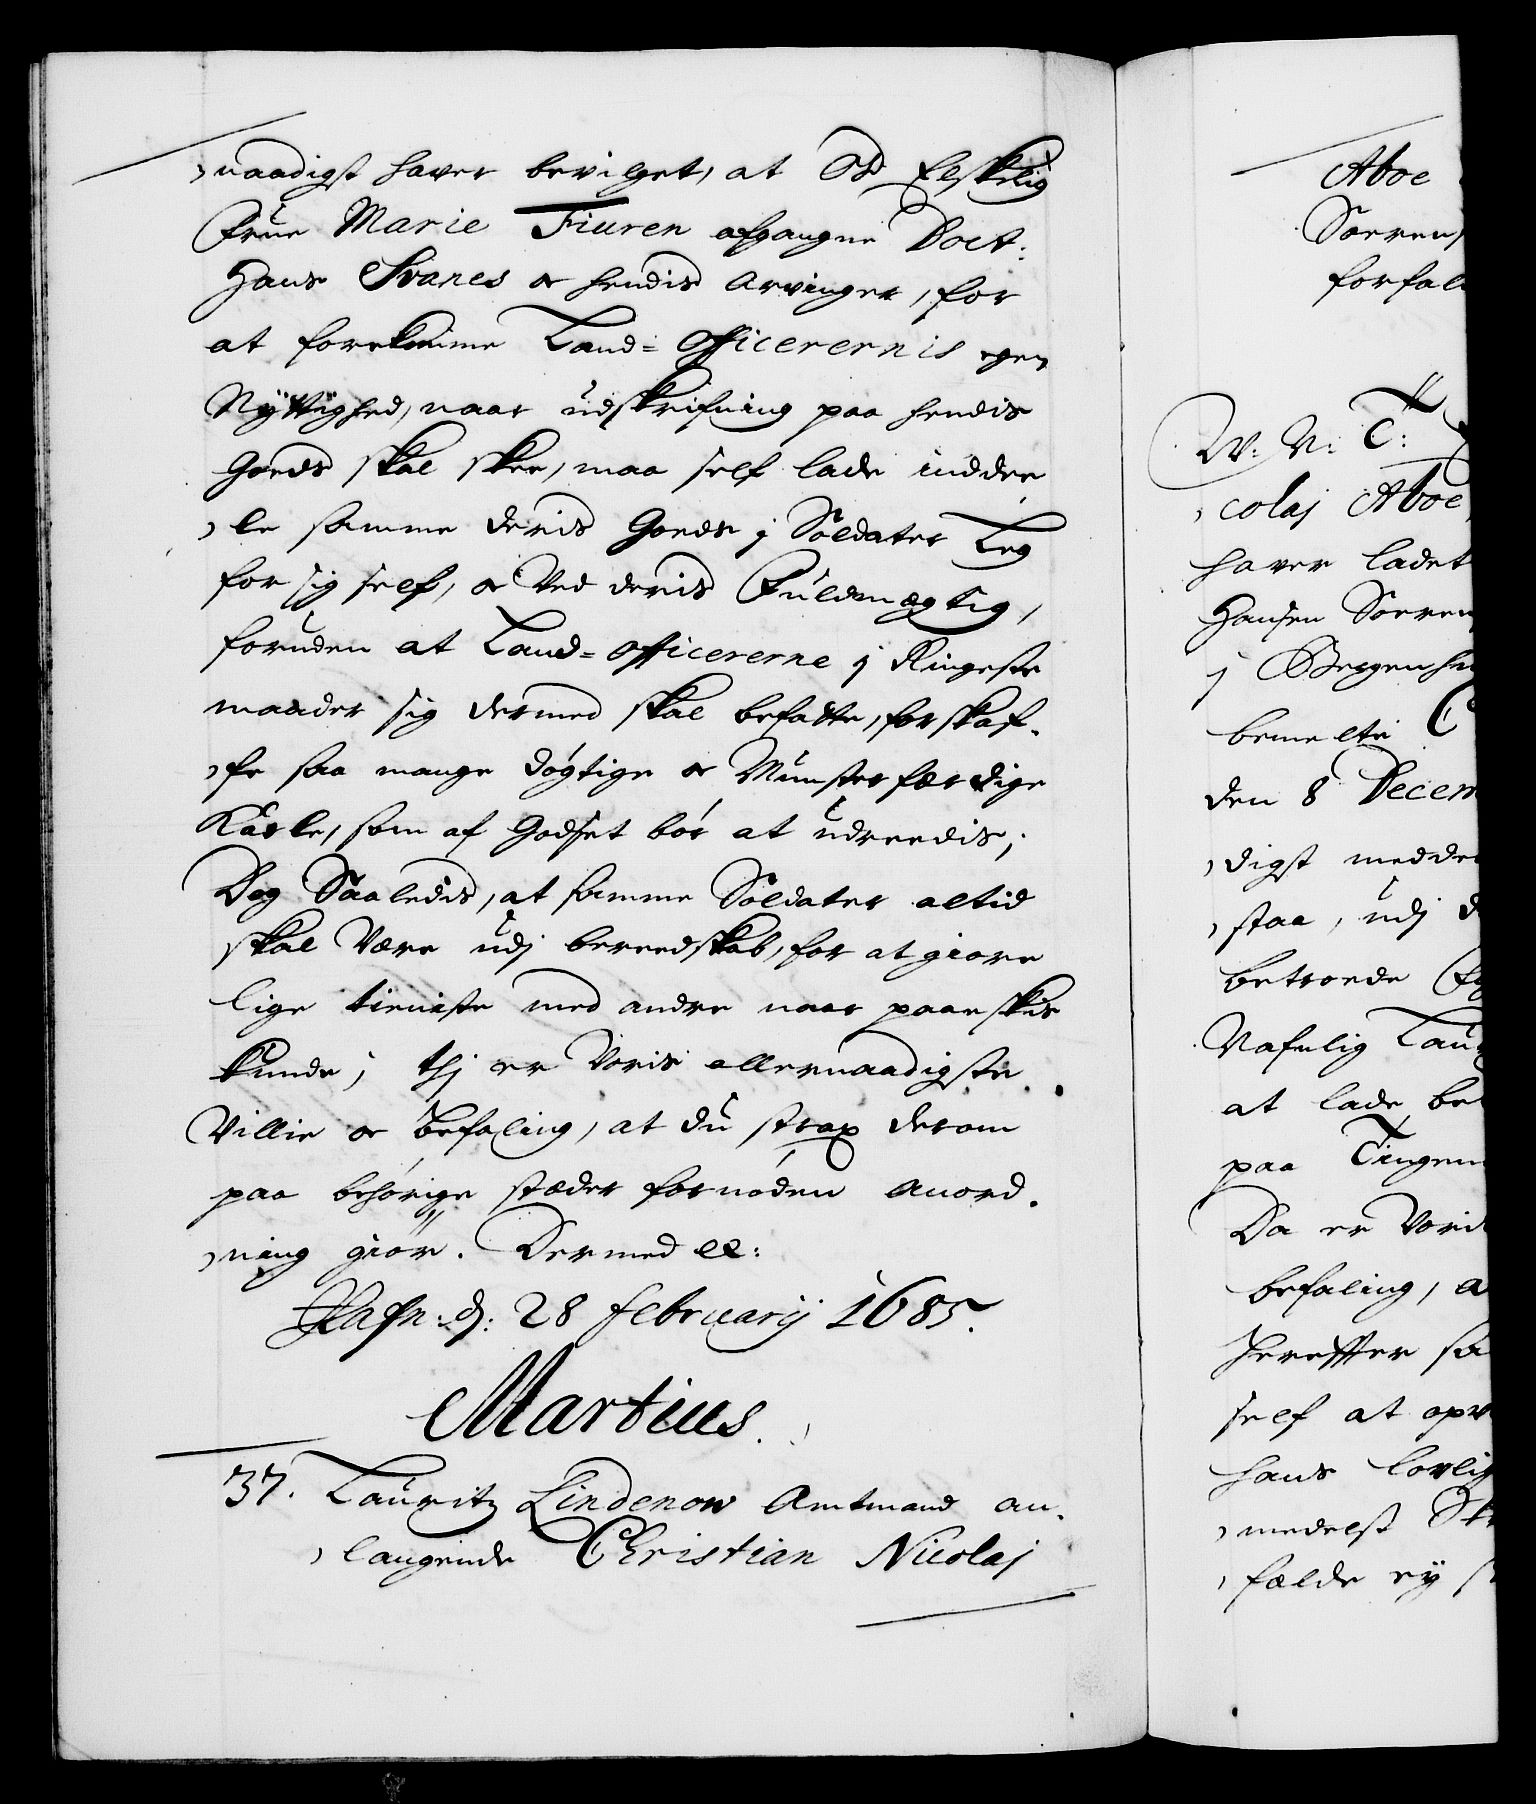 naadigst hafver bevilget, at Os Elskelig
Frue Marie Fiuren afgangne Doct:
Hans Svanes oc hendis Arvinger, for
at forekomme Land=Officerernis egen
Nyttighed, naar udskrifning paa hendis
Gods skal skee, maa self lade inddee
le samme deris Gods j Soldater Leg
for sig self, oc Ved deris Fuldmægtig,
foruden at Land=officererne j Ringeste
maader sig dermed skal befatte, forskaf-
fe saa mange døgtige oc Munsterferdige
Karle, som af Godset bør at udreedis;
Dog Saaledis, at samme Soldater altid
skal Være udj bereedskab, for at giøre
lige tieniste med andre naar paaeskis
kunde; thj er Voris allernaadigste
Villie oc befaling, at du strax derom
paa behørige stæder fornøden Anord-
ning giør. Dermed etc:
Hafn: d: 28 februarij 1685.
Martius.
37. Lauritz Lindenow Amtmand an-
langende Christian Nicolaj
Aboe
Sørens
forfal
W. V: T:
colaj Aboe
hafver ladet
Hansen Søren
j Bergenhu
bemelte C
den 8 Decem
digst medde
staa, udj d
betroede
Vafelig Lau
at lade be
paa Tingen
Da er Vori
befaling, a
herefter sa
self at opv
hans lovlig
medelst
felde ey s